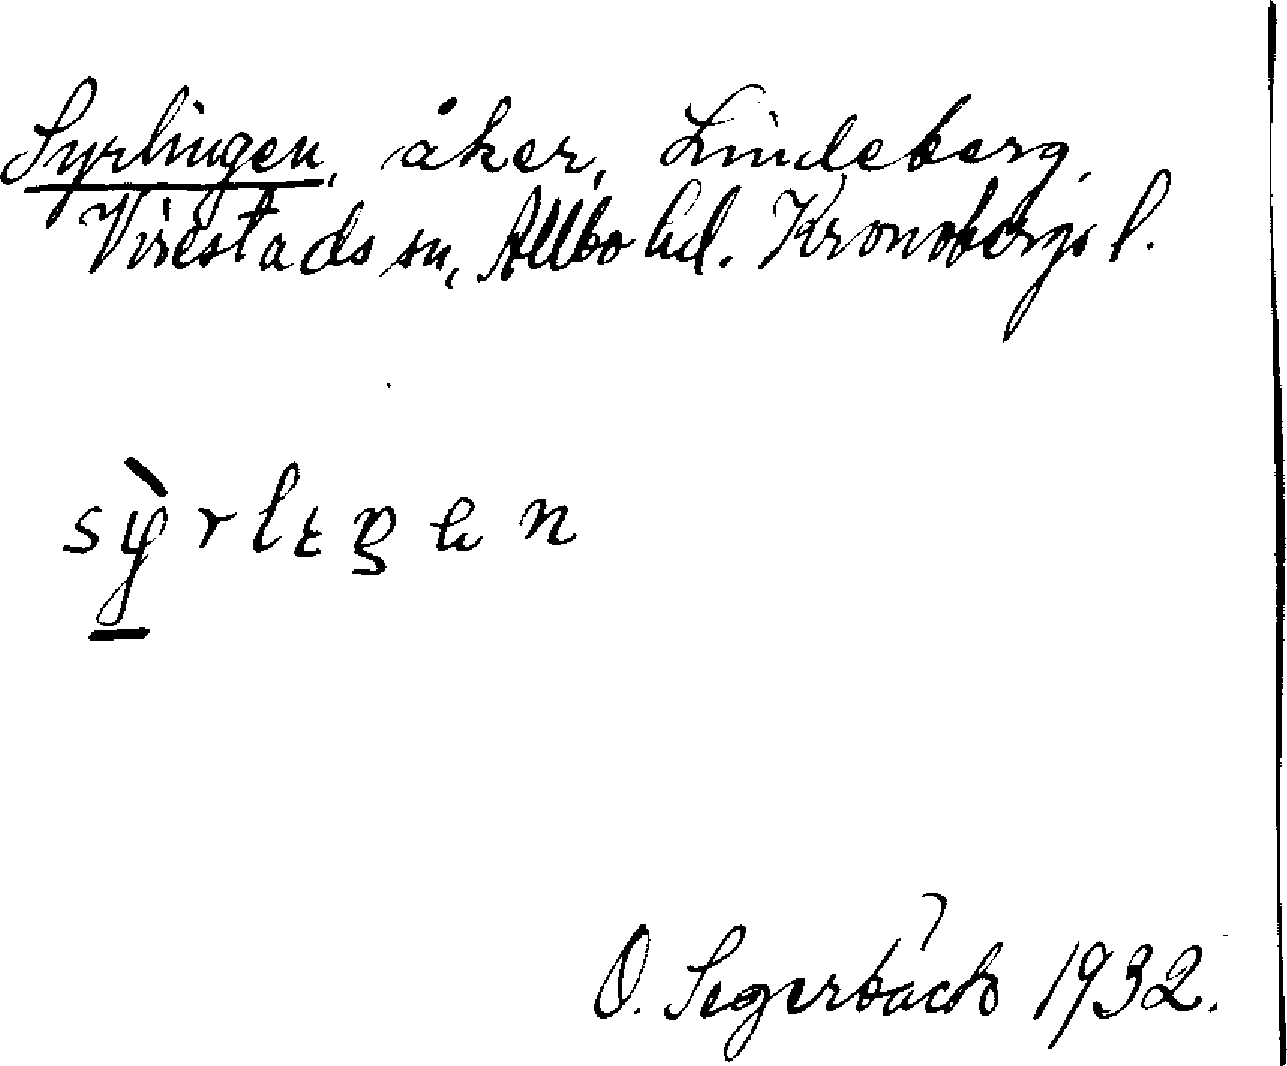 Syrlingen, åker, Lindeberg,
Virestads sn, Allbo hd. Kronobergs l.
sỳrlıŋen
O. Segerbäck 1932.